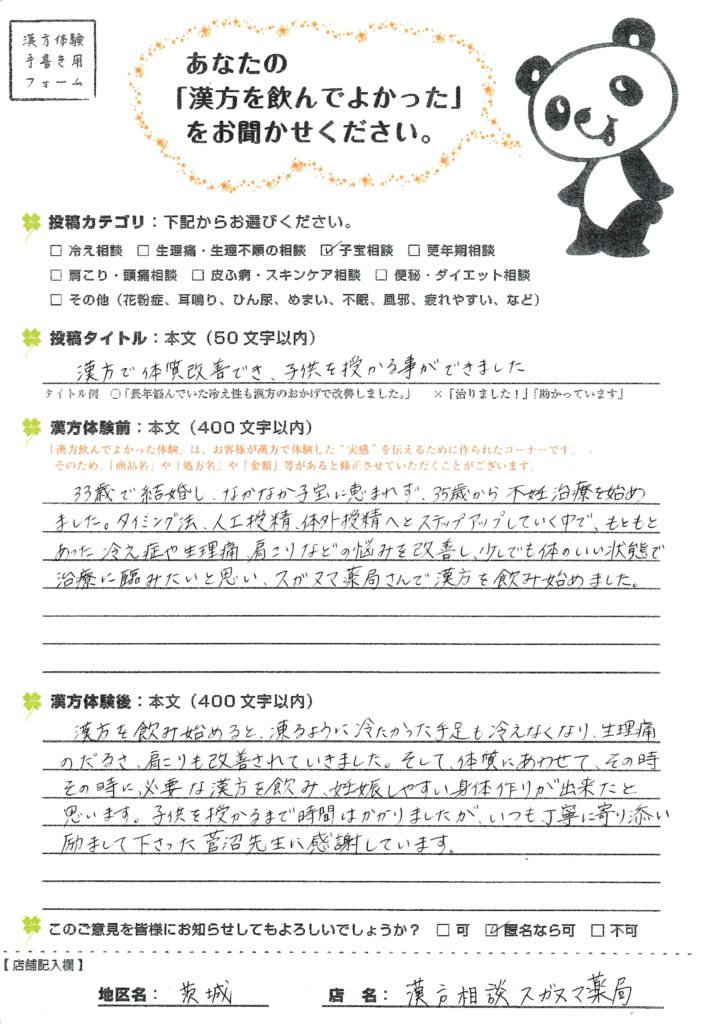 漢方体験
手書き用
フォーム
あなたの
「漢方を飲んでよかった」
をお聞かせください。
投稿カテゴリ：下記からお選びください。
□ 冷え相談 □ 生理痛・生理不順の相談 ☑ 子宝相談 □ 更年期相談
□ 肩こり・頭痛相談 □ 皮ふ病・スキンケア相談 □ 便秘・ダイエット相談
□ その他（花粉症、耳鳴り、ひん尿、めまい、不眠、風邪、疲れやすい、など）
投稿タイトル：本文（50文字以内）
漢方で体質改善でき、子供を授かる事ができました
タイトル例 ○「長年悩んでいた冷え性も漢方のおかげで改善しました。」 ×「治りました！」「助かっています」
漢方体験前：本文（400文字以内）
「漢方飲んでよかった体験」は、お客様が漢方で体験した“実感”を伝えるために作られたコーナーです。
そのため、「商品名」や「処方名」や「金額」等があると修正させていただくことがございます。
33歳で結婚し、なかなか子宝に恵まれず、35歳から不妊治療を始め
ました。タイミング法、人工授精、体外授精へとステップアップしていく中で、もともと
あった冷え症や生理痛、肩こりなどの悩みを改善し、少しでも体のいい状態で
治療に臨みたいと思い、スガヌマ薬局さんで漢方を飲み始めました。
漢方体験後：本文（400文字以内）
漢方を飲み始めると、凍るように冷たかった手足も冷えなくなり、生理痛
のだるさ、肩こりも改善されていきました。そして、体質にあわせて、その時
その時に必要な漢方を飲み、妊娠しやすい身体作りが出来たと
思います。子供を授かるまで時間はかかりましたが、いつも丁寧に寄り添い
励まして下さった菅沼先生に感謝しています。
このご意見を皆様にお知らせしてもよろしいでしょうか？ □ 可 ☑ 匿名なら可 □ 不可
【店舗記入欄】
地区名： 茨城 店 名： 漢方相談スガヌマ薬局